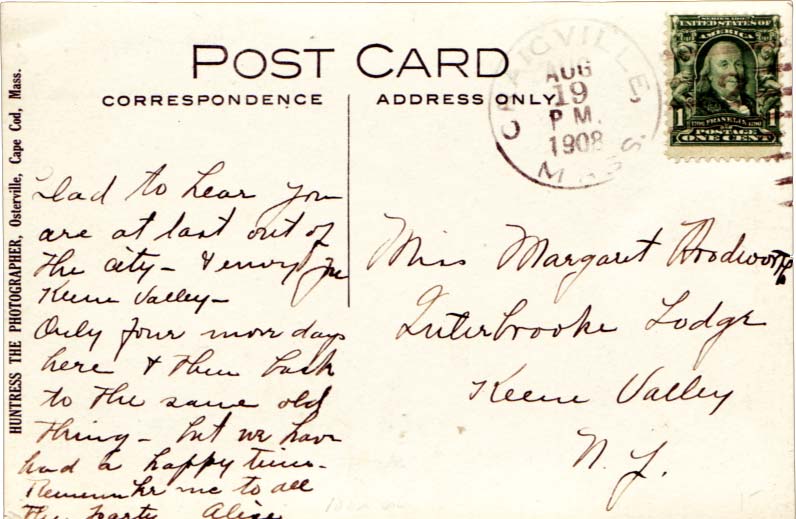 POST CARD
CORRESPONDENCE
ADDRESS ONLY.
HUNTRESS THE PHOTOGRAPHER, Osterville, Cape Cod, Mass.
CRAIGVILLE,
AUG
19
PM.
1908
MASS.
SERIES 1902
UNITED STATES OF
AMERICA
1 FRANKLIN 1
POSTAGE
ONE CENT
Glad to hear you
are at last out of
the city - & envy you
Keene Valley -
Only four more days
here & then back
to the same old
thing - but we have
had a happy time.
Remember me to all
the party Alice
Miss Margaret Woodworth
Interbrooke Lodge
Keene Valley
N.Y.